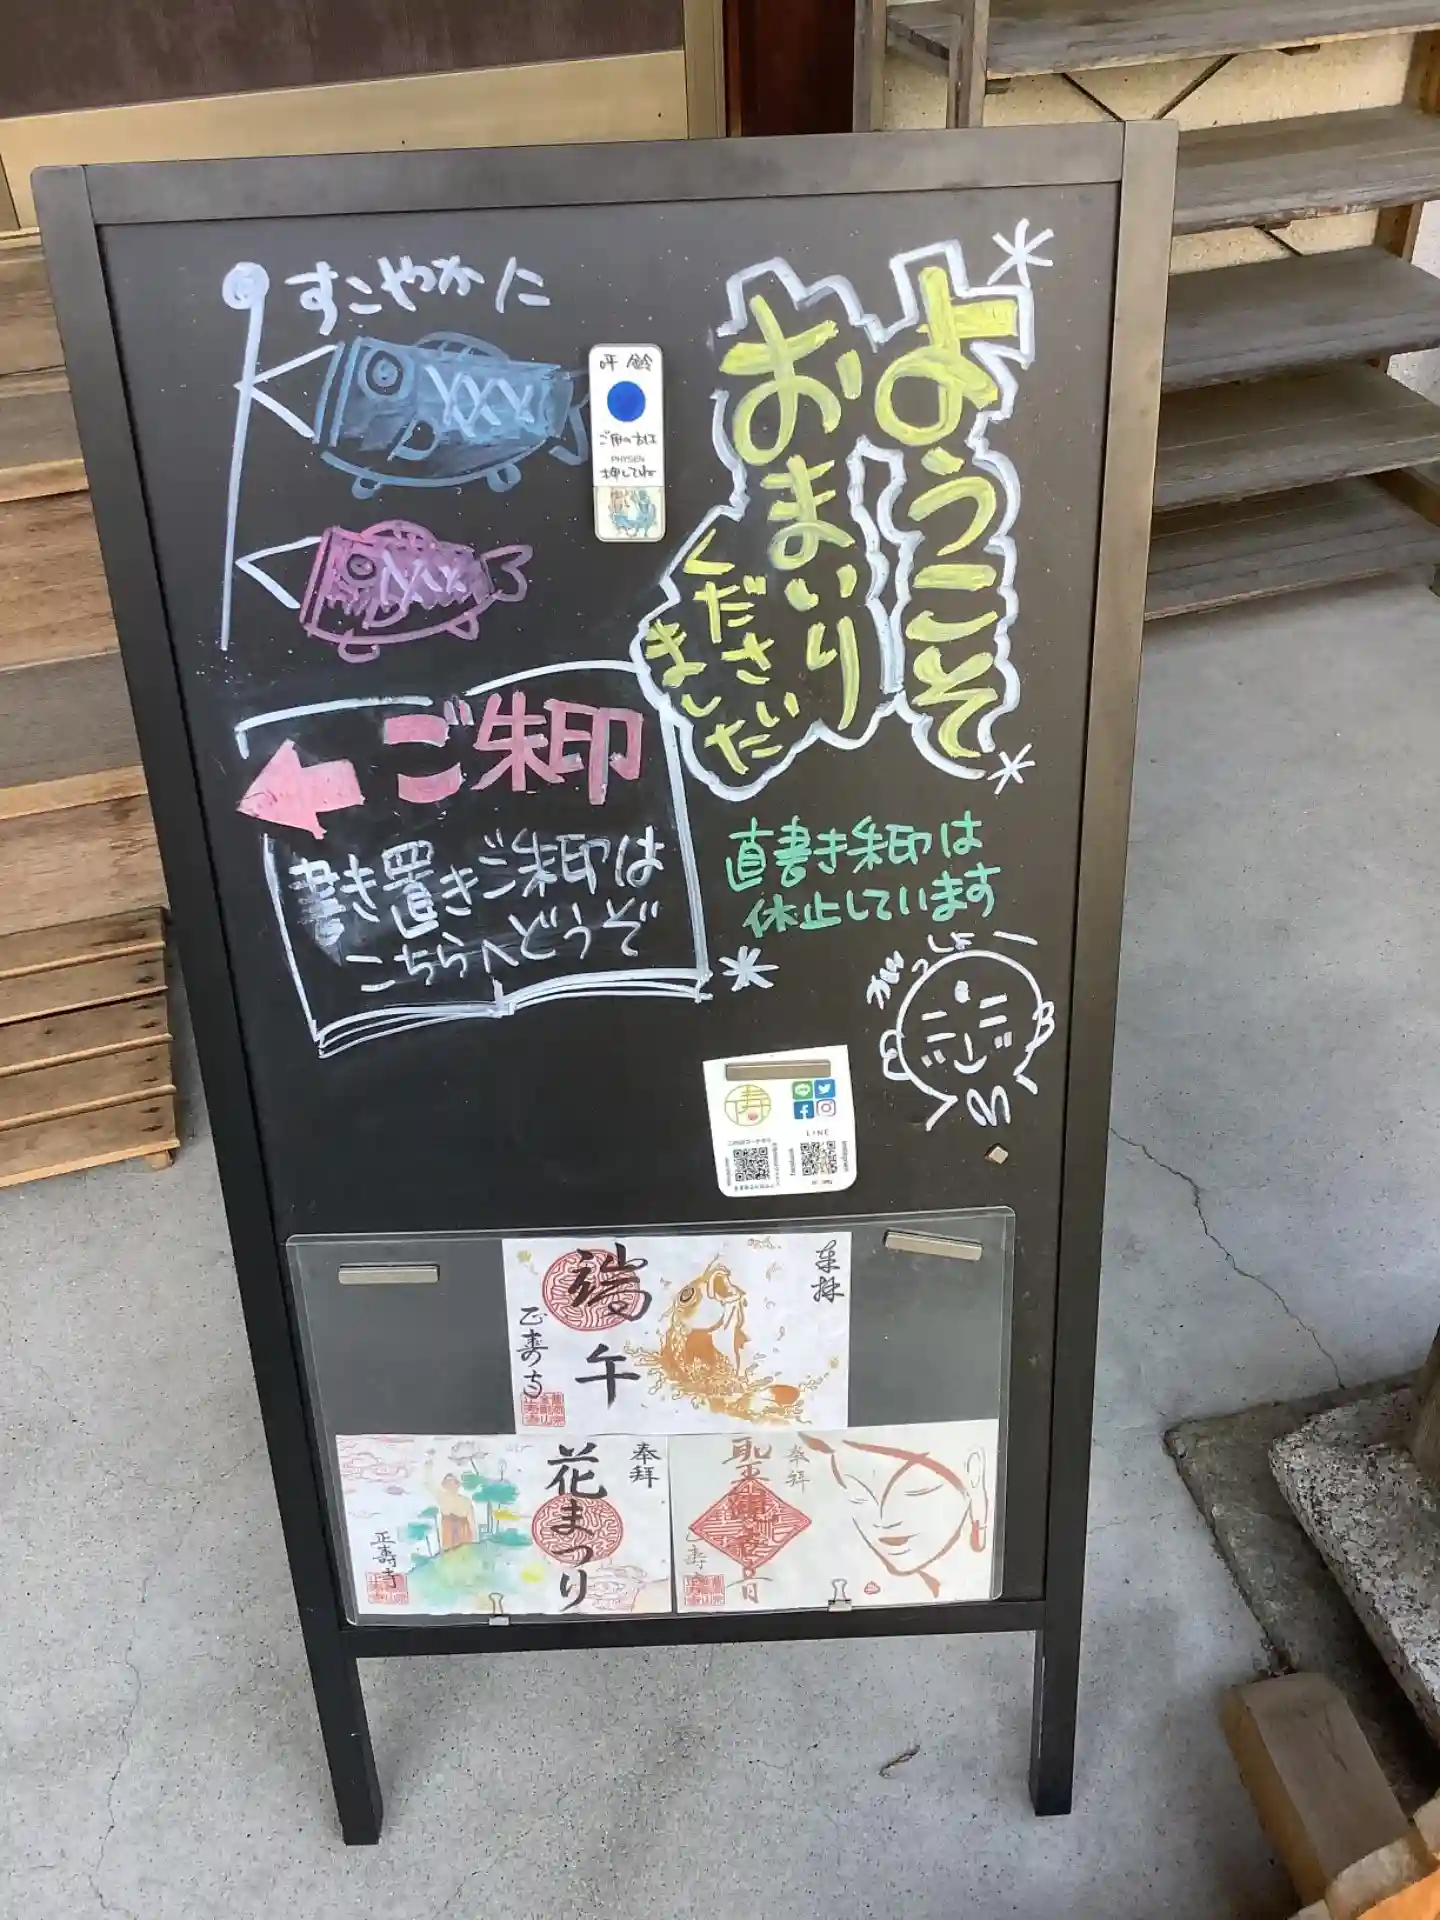 すこやかに
ようこそ
おまいり
ください
ました
呼鈴
ご用の方は
PHYSEN
押してね
ご朱印
書き置きご朱印は
こちらへどうぞ
直書き朱印は
休止しています
がっしょー
寿
LINE
奉拝
端午
正寿寺
奉拝
花まつり
正壽寺
奉拝
聖
観
音